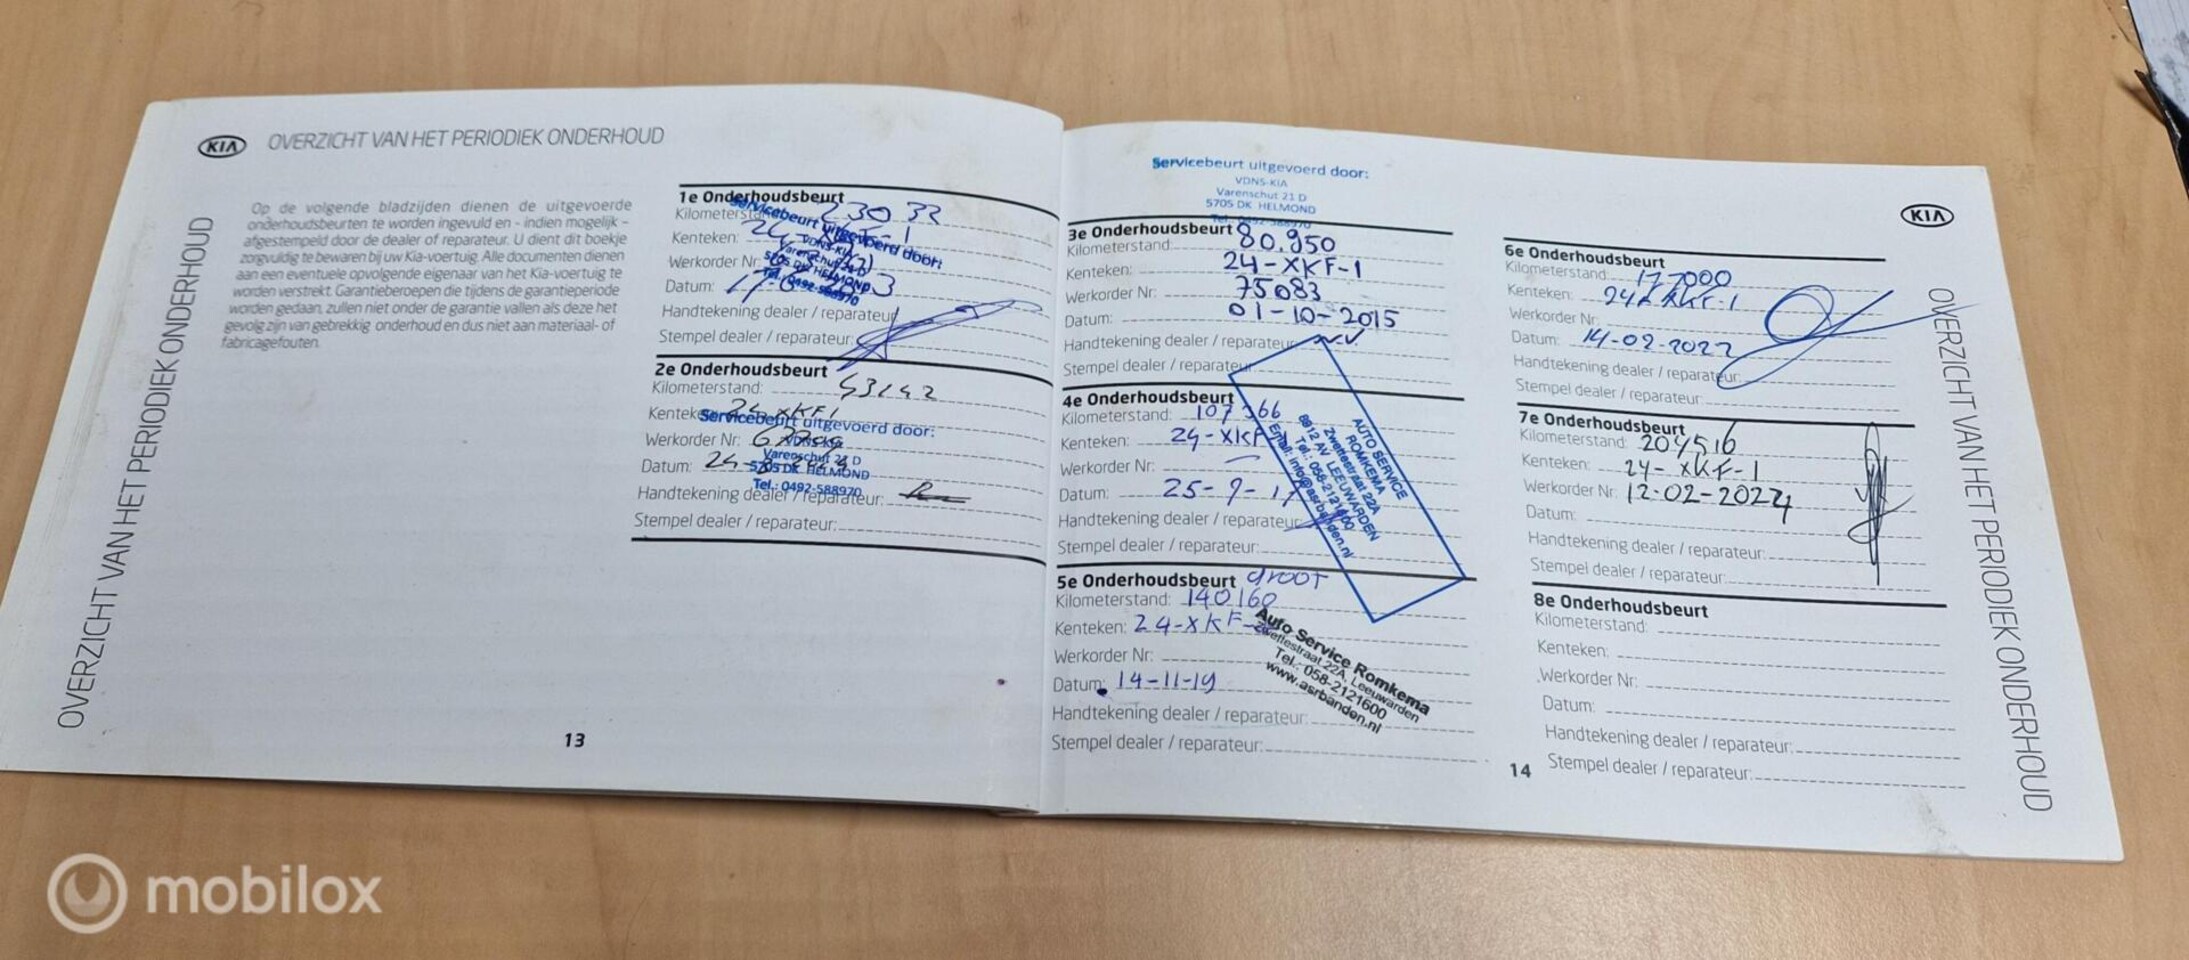 KIA OVERZICHT VAN HET PERIODIEK ONDERHOUD
OVERZICHT VAN HET PERIODIEK ONDERHOUD
Op de volgende bladzijden dienen de uitgevoerde
onderhoudsbeurten te worden ingevuld en - indien mogelijk -
afgestempeld door de dealer of reparateur. U dient dit boekje
zorgvuldig te bewaren bij uw Kia-voertuig. Alle documenten dienen
aan een eventuele opvolgende eigenaar van het Kia-voertuig te
worden verstrekt. Garantieberoepen die tijdens de garantieperiode
worden gedaan, zullen niet onder de garantie vallen als deze het
gevolg zijn van gebrekkig onderhoud en dus niet aan materiaal- of
fabricagefouten.
1e Onderhoudsbeurt
Kilometerstand: 23032
Kenteken:
Werkorder Nr:
Datum:
Handtekening dealer / reparateur
Stempel dealer / reparateur:
Servicebeurt uitgevoerd door:
VDNS-KIA
Varenschut 21 D
5705 DK HELMOND
Tel.: 0492-588970
2e Onderhoudsbeurt
Kilometerstand:
Kenteken: 24-XKF1
Werkorder Nr:
Datum:
Handtekening dealer / reparateur:
Stempel dealer / reparateur:
Servicebeurt uitgevoerd door:
VDNS-KIA
Varenschut 21 D
5705 DK HELMOND
Tel.: 0492-588970
13
Servicebeurt uitgevoerd door:
VDNS-KIA
Varenschut 21 D
5705 DK HELMOND
Tel.: 0492-588970
3e Onderhoudsbeurt
Kilometerstand: 80.950
Kenteken: 24-XKF-1
Werkorder Nr: 75083
Datum: 01-10-2015
Handtekening dealer / reparateur
Stempel dealer / reparateur
4e Onderhoudsbeurt
Kilometerstand: 107366
Kenteken: 24-XKF
Werkorder Nr:
Datum: 25-9-17
Handtekening dealer / reparateur
Stempel dealer / reparateur:
AUTO SERVICE
ROMKEMA
Zwettestraat 22A
8912 AV LEEUWARDEN
Tel.: 058-2121600
Email: info@asrbanden.nl
5e Onderhoudsbeurt groot
Kilometerstand: 140160
Kenteken: 24-XKF-
Werkorder Nr:
Datum: 14-11-19
Handtekening dealer / reparateur:
Stempel dealer / reparateur:
Auto Service Romkema
Zwettestraat 22A, Leeuwarden
Tel.: 058-2121600
www.asrbanden.nl
14
KIA
6e Onderhoudsbeurt
Kilometerstand: 177000
Kenteken: 24-XKF-1
Werkorder Nr:
Datum: 14-02-2022
Handtekening dealer / reparateur:
Stempel dealer / reparateur:
7e Onderhoudsbeurt
Kilometerstand: 204516
Kenteken: 24-XKF-1
Werkorder Nr: 12-02-2024
Datum:
Handtekening dealer / reparateur:
Stempel dealer / reparateur:
8e Onderhoudsbeurt
Kilometerstand:
Kenteken:
Werkorder Nr:
Datum:
Handtekening dealer / reparateur:
Stempel dealer / reparateur:
OVERZICHT VAN HET PERIODIEK ONDERHOUD
mobilox